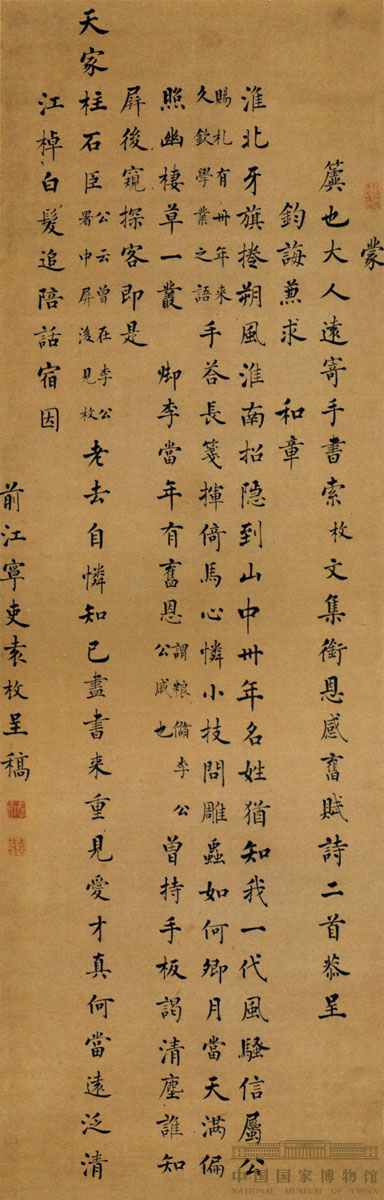 蒙
也大人遠寄手書索枚文集銜恩感舊賦詩二首恭呈
鈞誨兼求 和章
淮北牙旗捲朔風淮南招隱到山中卅年名姓猶知我一代風騷信屬公
賜札有卅年来久欽學業之語手荅長箋揮倚馬心憐小技問雕蟲如何卿月當天滿偏
照幽棲草一叢 御李當年有舊恩謂粮儲李公公戚也曾持手板謁清塵誰知
屏後窺探客即是
天家柱石臣公云曾在李公署中屏後見枚老去自憐知己盡書来重見愛才真何當遠泛清
江棹白髮追陪話宿因
前江寧吏袁枚呈稿
中国国家博物馆
NATIONAL MUSEUM OF CHINA